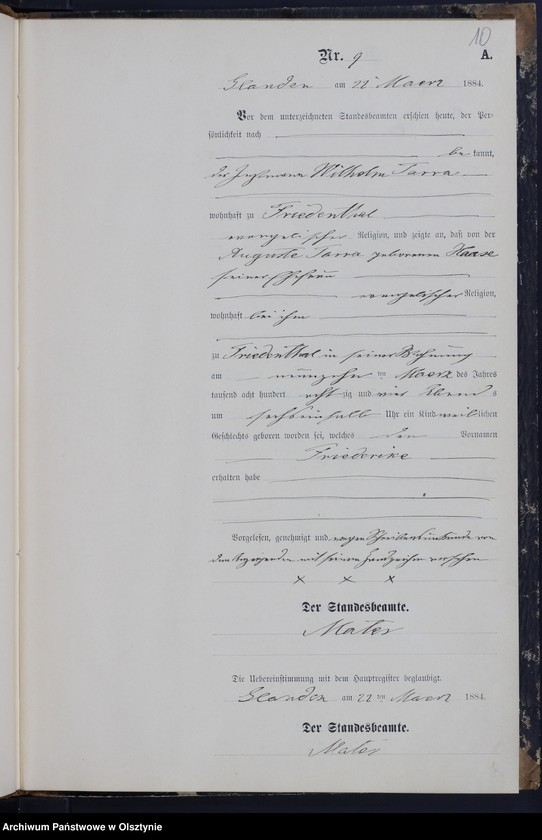 10
Nr. 9 A.
Glanden am 22ten Maerz 1884.
Vor dem unterzeichneten Standesbeamten erschien heute, der Per-
sönlichkeit nach
be kannt,
der Instmann Wilhelm Tarra
wohnhaft zu Friedenthal
evangelischer Religion, und zeigte an, daß von der
Auguste Tarra geborenen Haase
seiner Ehefrau
evangelischer Religion,
wohnhaft bei ihm
zu Friedenthal in seiner Wohnung
am neunzehn ten Maerz des Jahres
tausend acht hundert acht zig und vier Abend s
um sechseinhalb Uhr ein Kind weiblichen
Geschlechts geboren worden sei, welches den Vornamen
Friederike
erhalten habe
Vorgelesen, genehmigt und wegen Schreibensunkunde von
dem Anzeigenden mit seinem Handzeichen versehen
x x x
Der Standesbeamte.
Mater
Die Uebereinstimmung mit dem Hauptregister beglaubigt.
Glanden am 22 ten Maerz 1884.
Der Standesbeamte.
Mater
Archiwum Państwowe w Olsztynie